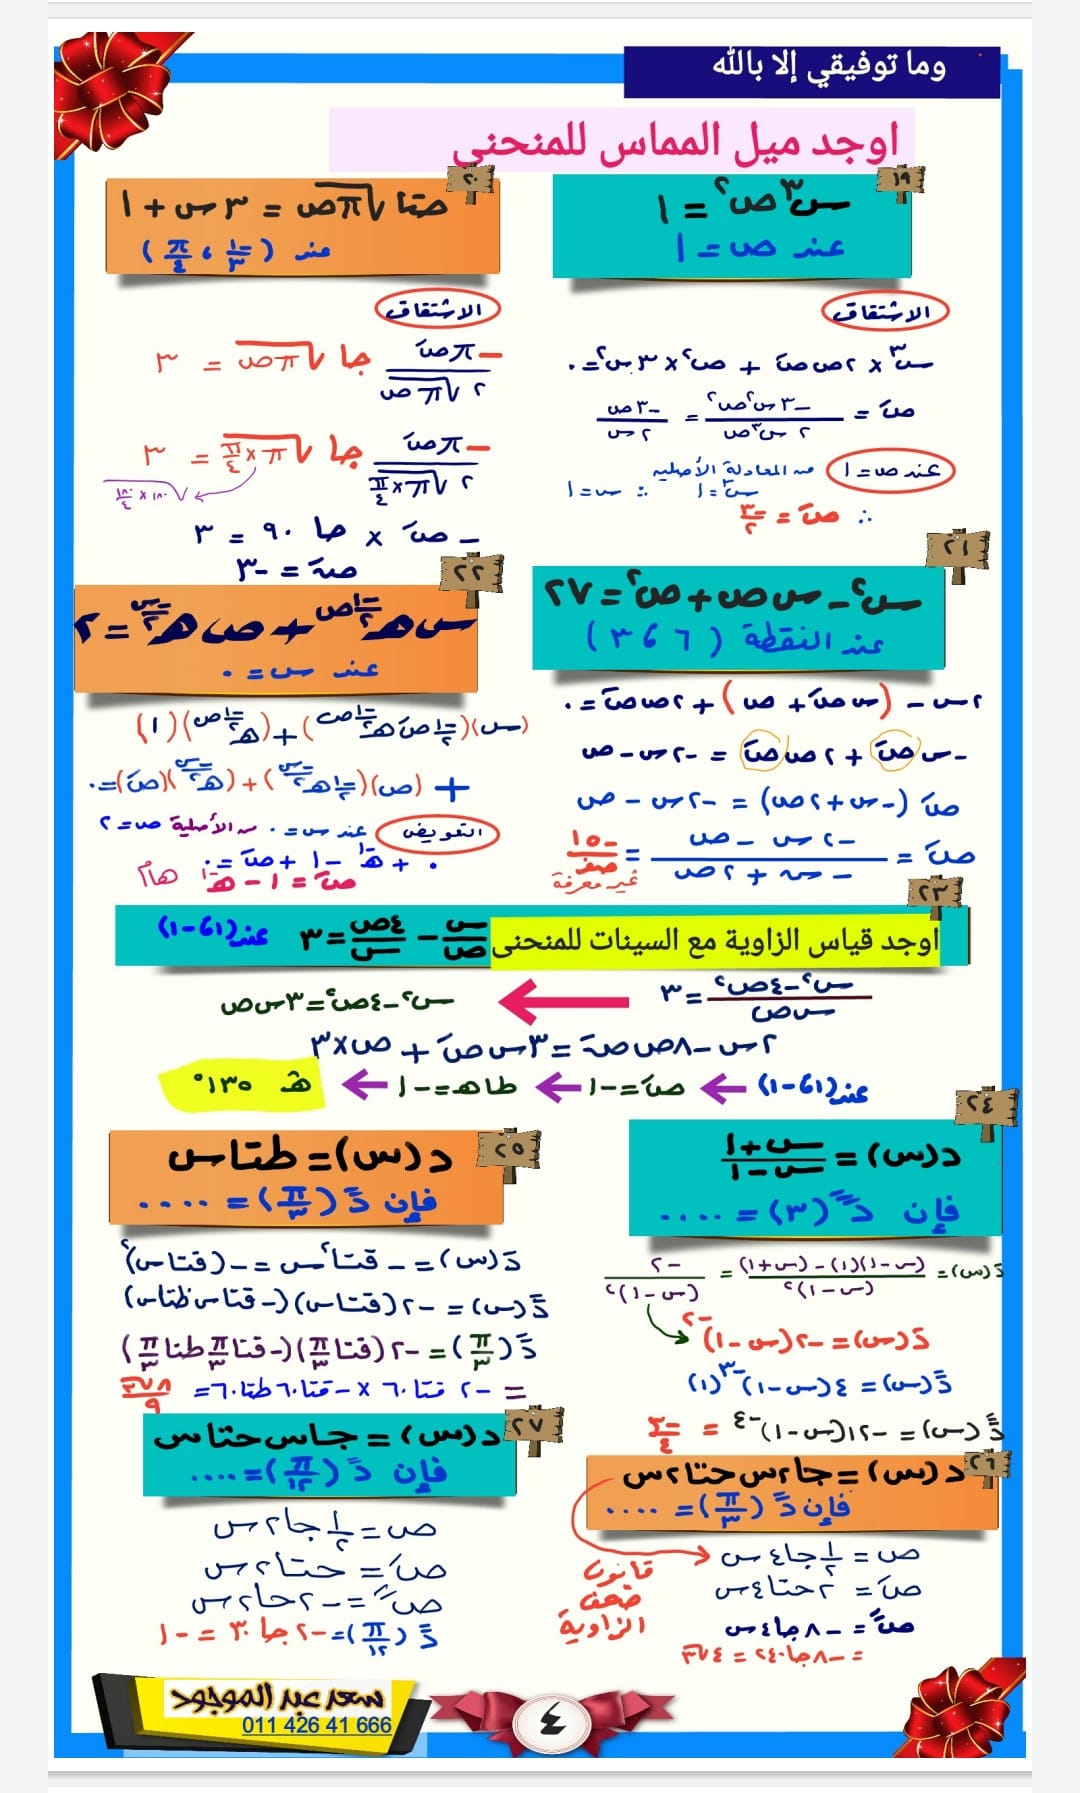 وما توفيقي إلا بالله
اوجد ميل المماس للمنحنى
١٩
س٣ ص٢ = ١
عند ص = ١
الاشتقاق
س٣ × ٢ص صَ + ص٢ × ٣س٢ = ٠
صَ = -٣س٢ص٢ / ٢س٣ص = -٣ص / ٢س
عند ص = ١ من المعادلة الأصلية
س٣ = ١ ∴ س = ١
∴ صَ = -٣/٢
٢٠
حتا √(πص) = ٣س + ١
عند (-١/٣ ، π/٤)
الاشتقاق
-πصَ / ٢√(πص) جا √(πص) = ٣
-πصَ / ٢√(π×π/٤) جا √(π×π/٤) = ٣
√(١٨٠ × ١٨٠/٤)
-صَ × جا ٩٠ = ٣
صَ = -٣
٢١
س٢ - س ص + ص٢ = ٢٧
عند النقطة (٦ ، ٣)
٢س - (س صَ + ص) + ٢ص صَ = ٠
-س صَ + ٢ص صَ = -٢س - ص
صَ (-س + ٢ص) = -٢س - ص
صَ = -٢س - ص / -س + ٢ص = -١٥ / صفر
غير معرفة
٢٢
س هـ^(-١/٢ ص) + ص هـ^(-س/٢) = ٢
عند س = ٠
(س)(-١/٢ صَ هـ^(-١/٢ ص)) + (هـ^(-١/٢ ص))(١)
+ (ص)(-١/٢ هـ^(-س/٢)) + (هـ^(-س/٢))(صَ) = ٠
التعويض عند س = ٠ من الأصلية ص = ٢
٠ + هـ^-١ - ١ + صَ = ٠
صَ = ١ - هـ^-١ هام
٢٣
اوجد قياس الزاوية مع السينات للمنحنى س/ص - ٤ص/س = ٣ عند (١،-١)
س٢ - ٤ص٢ / س ص = ٣ ← س٢ - ٤ص٢ = ٣س ص
٢س - ٨ص صَ = ٣س صَ + ص × ٣
عند (١،-١) ← صَ = -١ ← طاهـ = -١ ← هـ ١٣٥°
٢٤
د(س) = س+١ / س-١
فإن دََ َ(٣) = ....
دَ(س) = (س-١)(١) - (س+١) / (س-١)٢ = -٢ / (س-١)٢
دَ(س) = -٢(س-١)^-٢
دََ(س) = ٤(س-١)^-٣ (١)
دََ َ(س) = -١٢(س-١)^-٤ = -٣/٤
٢٥
د(س) = طتاس
فإن دََ(π/٣) = ....
دَ(س) = -قتا٢س = -(قتاس)٢
دََ(س) = -٢(قتاس)(-قتاس طتاس)
دََ(π/٣) = -٢(قتا π/٣)(-قتا π/٣ طتا π/٣)
= -٢ قتا ٦٠ × -قتا ٦٠ طتا ٦٠ = ٨√٣/٩
٢٦
د(س) = جا٢س حتا٢س
فإن دََ(π/٣) = ....
ص = ١/٢ جا٤س
صَ = ٢حتا٤س
صََ = -٨جا٤س
= -٨جا٢٤٠ = ٤√٣
قانون
ضعف
الزاوية
٢٧
د(س) = جاس حتاس
فإن دََ(π/١٢) = ....
ص = ١/٢ جا٢س
صَ = حتا٢س
صََ = -٢جا٢س
دََ(π/١٢) = -٢جا٣٠ = -١
سعد عبد الموجود
011 426 41 666
٤